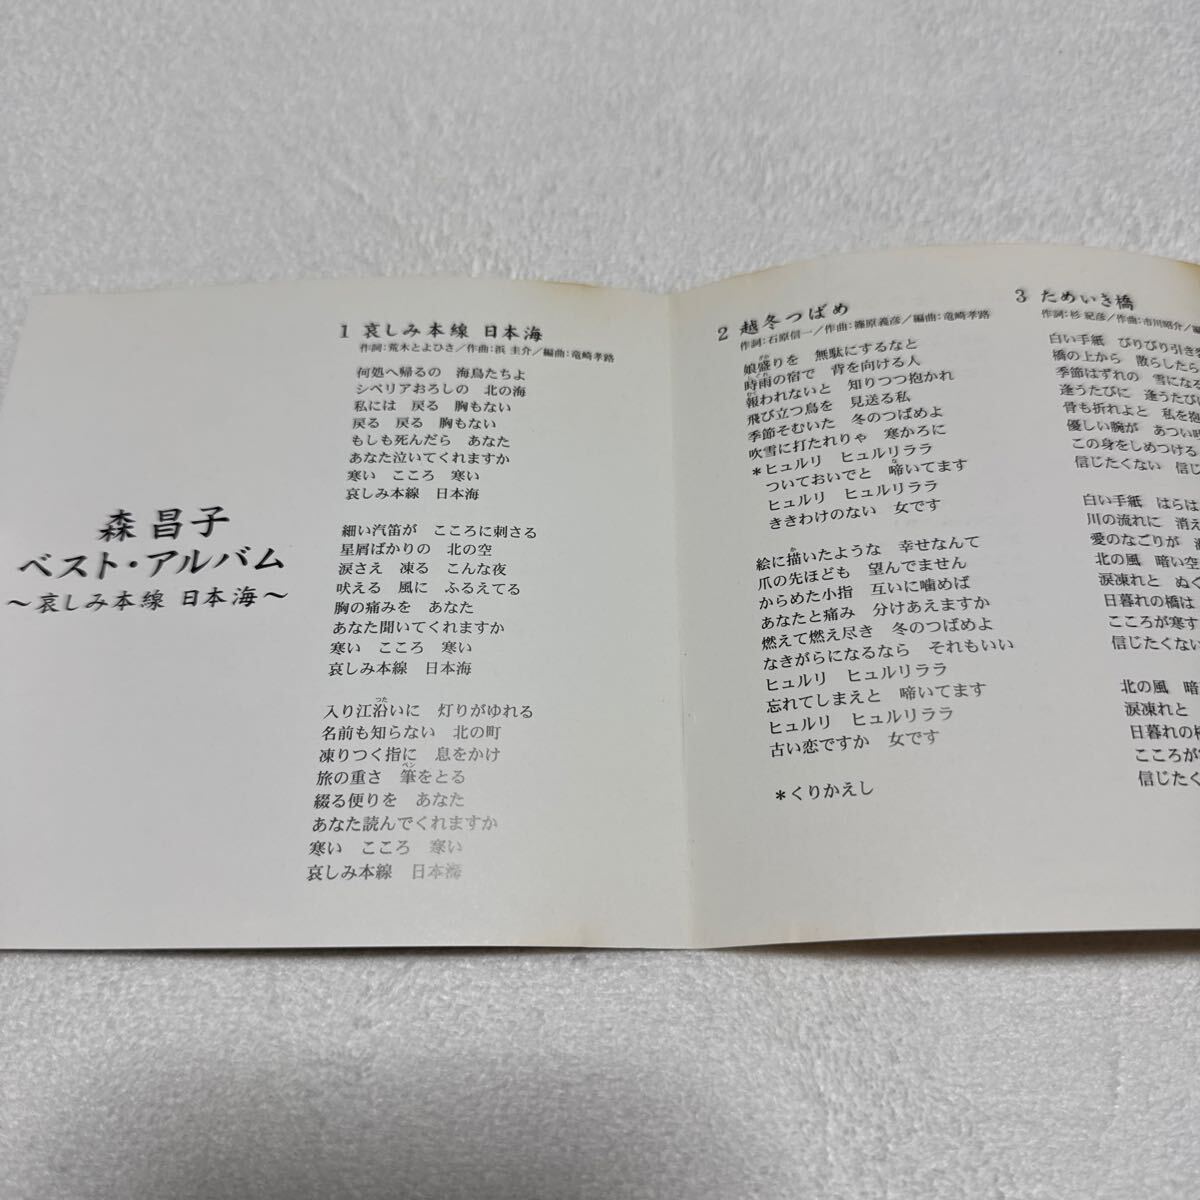 森 昌子
ベスト・アルバム
〜哀しみ本線 日本海〜
1 哀しみ本線 日本海
作詞：荒木とよひさ／作曲：浜 圭介／編曲：竜崎孝路
何処へ帰るの 海鳥たちよ
シベリアおろしの 北の海
私には 戻る 胸もない
戻る 戻る 胸もない
もしも死んだら あなた
あなた泣いてくれますか
寒い こころ 寒い
哀しみ本線 日本海
細い汽笛が こころに刺さる
星屑ばかりの 北の空
涙さえ 凍る こんな夜
吠える 風に ふるえてる
胸の痛みを あなた
あなた聞いてくれますか
寒い こころ 寒い
哀しみ本線 日本海
入り江沿いに 灯りがゆれる
名前も知らない 北の町
凍りつく指に 息をかけ
旅の重さ 筆をとる
綴る便りを あなた
あなた読んでくれますか
寒い こころ 寒い
哀しみ本線 日本海
2 越冬つばめ
作詞：石原信一／作曲：篠原義彦／編曲：竜崎孝路
娘盛りを 無駄にするなと
時雨の宿で 背を向ける人
報われないと 知りつつ抱かれ
飛び立つ鳥を 見送る私
季節そむいた 冬のつばめよ
吹雪に打たれりゃ 寒かろに
＊ヒュルリ ヒュルリララ
ついておいでと 啼いてます
ヒュルリ ヒュルリララ
ききわけのない 女です
絵に描いたような 幸せなんて
爪の先ほども 望んでません
からめた小指 互いに噛めば
あなたと痛み 分けあえますか
燃えて燃え尽き 冬のつばめよ
なきがらになるなら それもいい
ヒュルリ ヒュルリララ
忘れてしまえと 啼いてます
ヒュルリ ヒュルリララ
古い恋ですか 女です
＊くりかえし
3 ためいき橋
作詞：杉 紀彦／作曲：市川昭介／編
白い手紙 びりびり引き
橋の上から 散らしたら
季節はずれの 雪になる
逢うたびに 逢うたびに
背も折れよと 私を抱
優しい腕が あつい
この身をしめつける
信じたくない 信じ
白い手紙 はらは
川の流れに 消え
愛のなごりが
北の風 暗い空
涙凍れと ぬく
日暮れの橋は
こころが寒す
信じたくない
北の風 暗
涙凍れと
日暮れの橋
こころが
信じたく